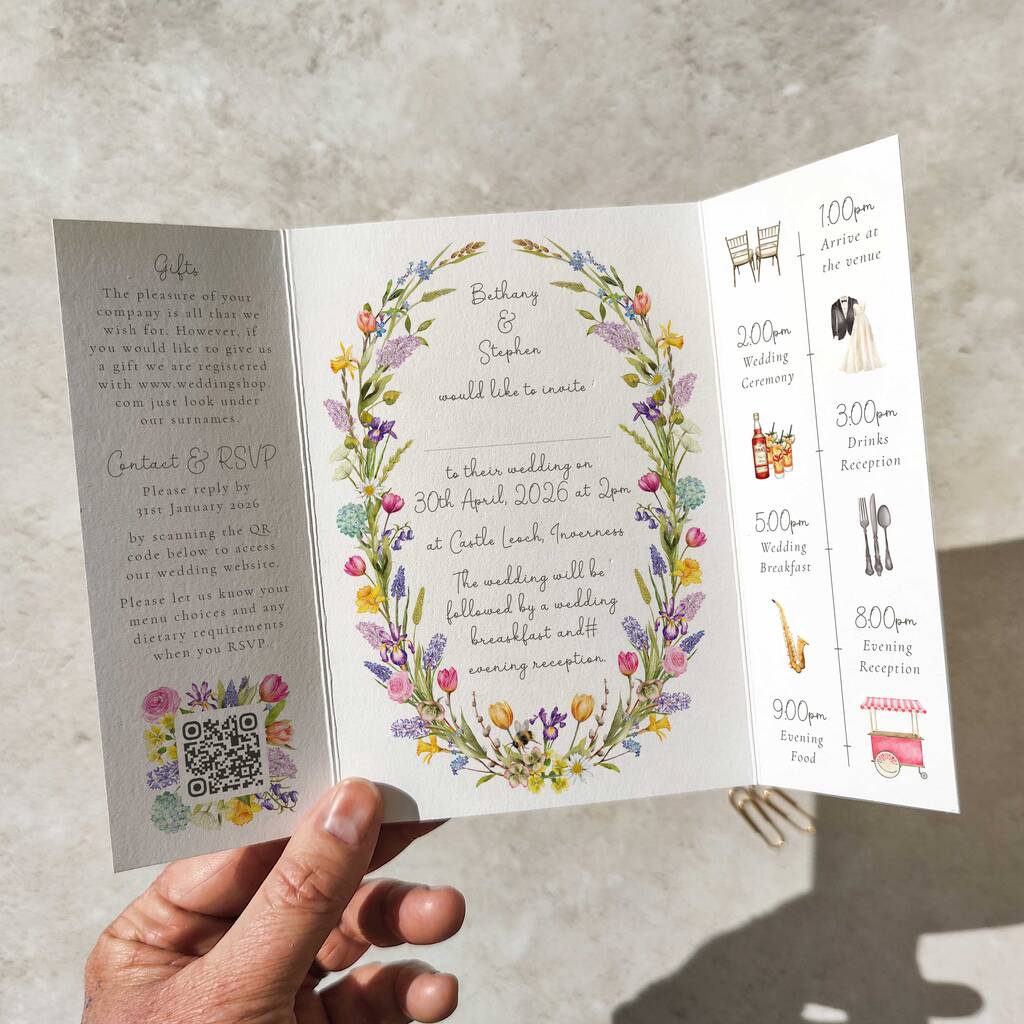 Gifts
The pleasure of your
company is all that we
wish for. However, if
you would like to give us
a gift we are registered
with www.weddingshop.
com just look under
our surnames.
Contact & RSVP
Please reply by
31st January 2026
by scanning the QR
code below to access
our wedding website.
Please let us know your
menu choices and any
dietary requirements
when you RSVP.
Bethany
&
Stephen
would like to invite
to their wedding on
30th April, 2026 at 2pm
at Castle Leoch, Inverness
The wedding will be
followed by a wedding
breaskfast and#
evening reception.
1.00pm
Arrive at
the venue
2.00pm
Wedding
Ceremony
3:00pm
Drinks
Reception
5:00pm
Wedding
Breakfast
8:00pm
Evening
Reception
9.00pm
Evening
Food